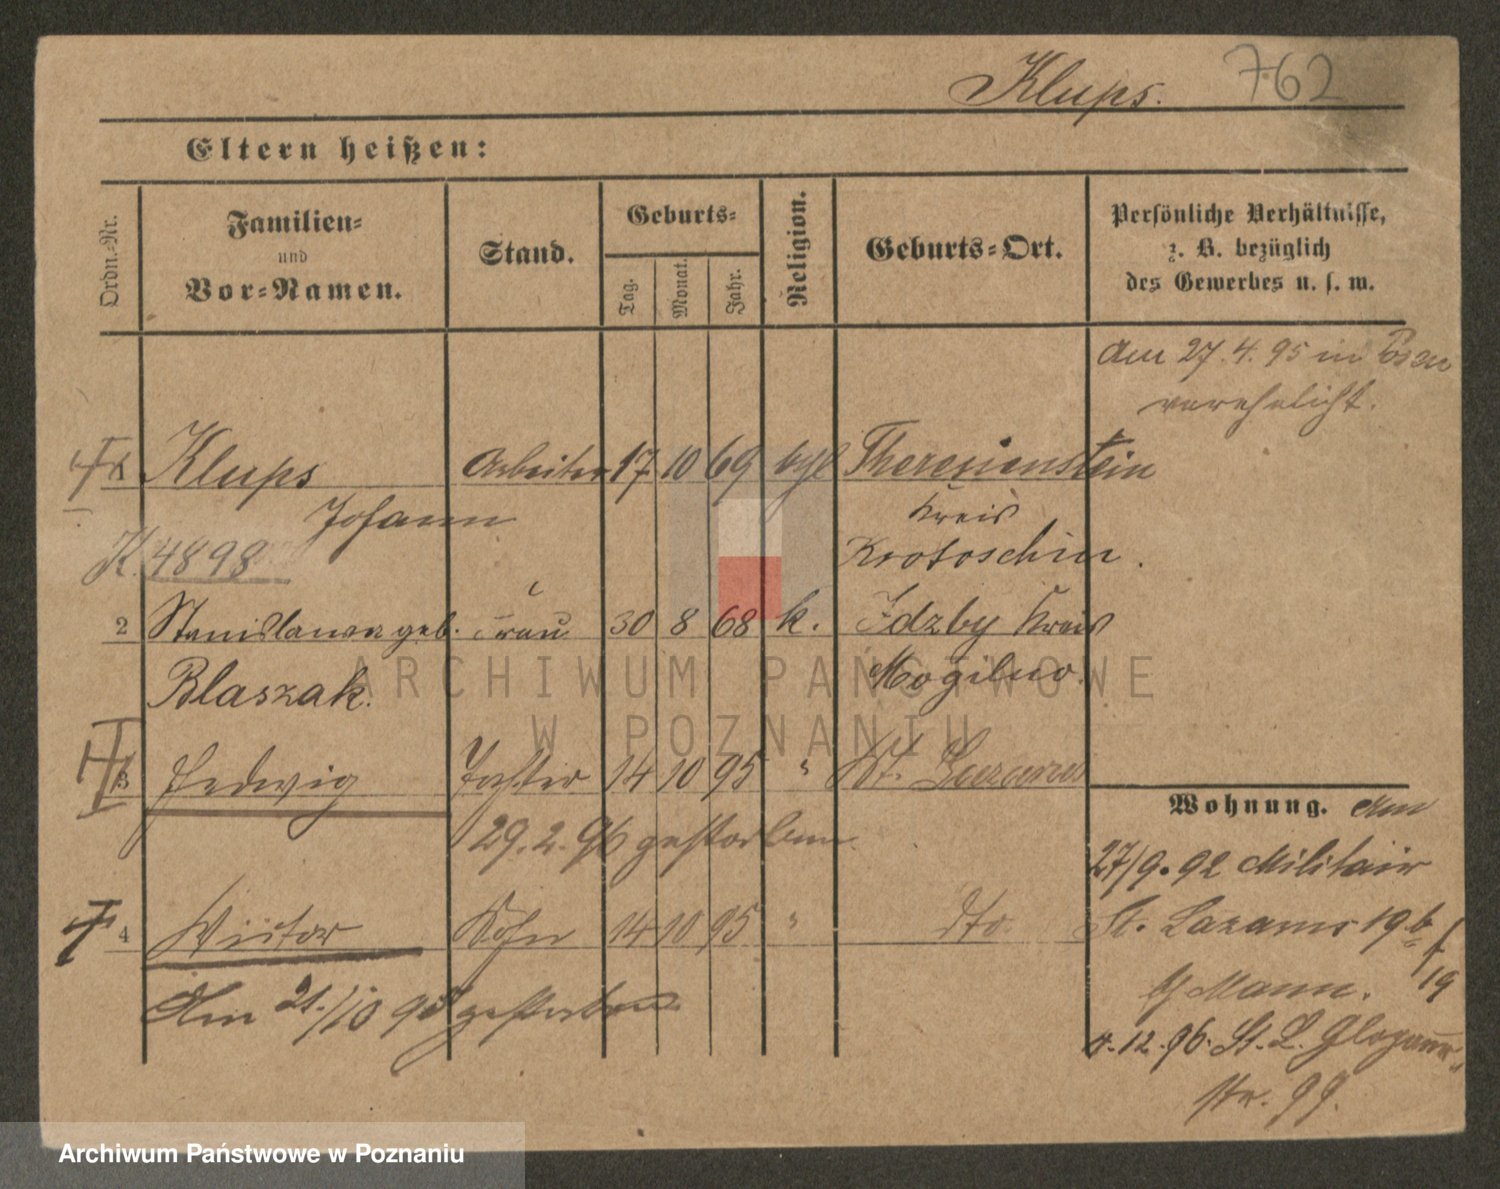 Klups. 762
Eltern heißen:
Ordn.-Nr.
Familien-
und
Vor-Namen.
Stand.
Geburts-
Tag.
Monat.
Jahr.
Religion.
Geburts-Ort.
Persönliche Verhältnisse,
z. B. bezüglich
des Gewerbes u. s. w.
am 27.4.95 in Posen
verehelicht.
1 Klups Arbeiter 17 10 69 Theresienstein
Johann Kreis
K. 4898 Krotoschin.
2 Stanislawa geb. Frau 30 8 68 k. Idzby Kreis
Blaszak. Mogilno.
3 Hedwig Tochter 14 10 95 " St. Lazarus
29.2.96 gestorben
4 Victor Sohn 14 10 95 " dto.
Am 21./10 95 gestorben
Wohnung. Am
27/9.92 Militair
St. Lazarus 19.b
19
Mann.
12.96. St. L. Glogauer-
str. 99.
ARCHIWUM PAŃSTWOWE
W POZNANIU
Archiwum Państwowe w Poznaniu